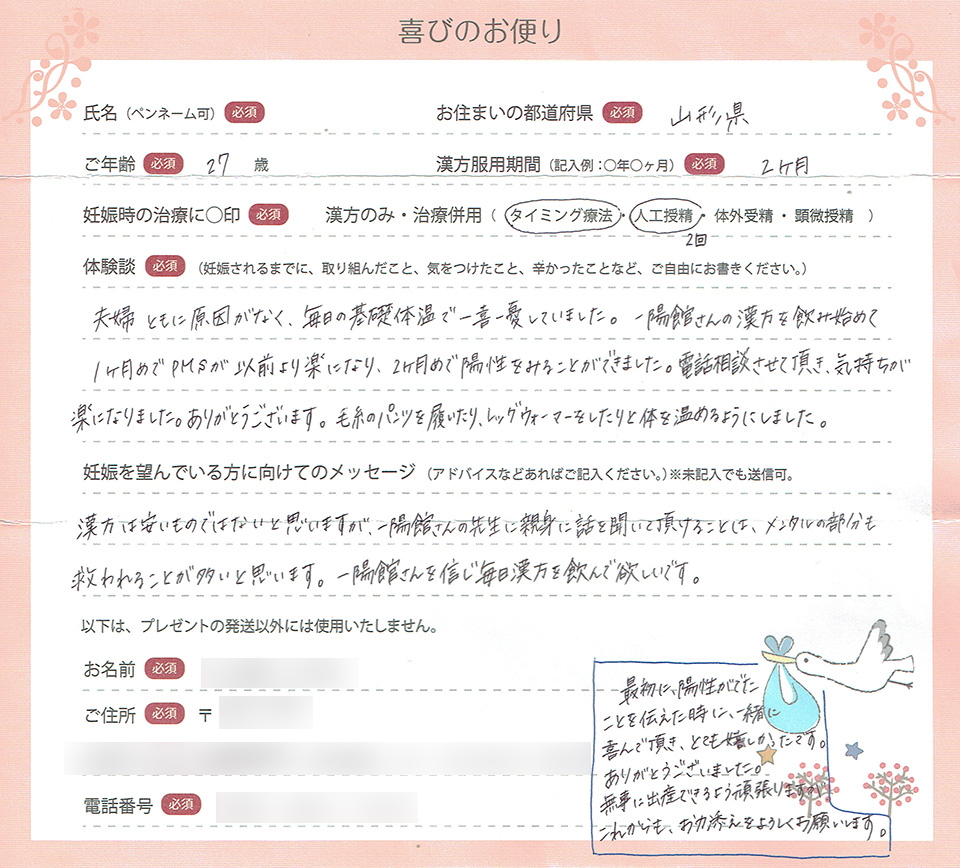 喜びのお便り
氏名（ペンネーム可） 必須 お住まいの都道府県 必須 山形県
ご年齢 必須 27 歳 漢方服用期間（記入例：〇年〇ヶ月） 必須 2ヶ月
妊娠時の治療に〇印 必須 漢方のみ・治療併用（ タイミング療法・人工授精・体外受精・顕微授精 ）
2回
体験談 必須 （妊娠されるまでに、取り組んだこと、気をつけたこと、辛かったことなど、ご自由にお書きください。）
夫婦ともに原因がなく、毎日の基礎体温で一喜一憂していました。一陽館さんの漢方を飲み始めて
1ヶ月めでPMSが以前より楽になり、2ヶ月めで陽性をみることができました。電話相談させて頂き、気持ちが
楽になりました。ありがとうございます。毛糸のパンツを履いたり、レッグウォーマーをしたりと体を温めるようにしました。
妊娠を望んでいる方に向けてのメッセージ （アドバイスなどあればご記入ください。）※未記入でも送信可。
漢方は安いものではないと思いますが、一陽館さんの先生に親身に話を聞いて頂けることは、メンタルの部分も
救われることが多いと思います。一陽館さんを信じ毎日漢方を飲んで欲しいです。
以下は、プレゼントの発送以外には使用いたしません。
お名前 必須
ご住所 必須 〒
電話番号 必須
最初に、陽性がでた
ことを伝えた時に、一緒に
喜んで頂き、とても嬉しかったです。
ありがとうございました。
無事に出産できるよう頑張りますが
これからも、お力添えをよろしくお願いします。